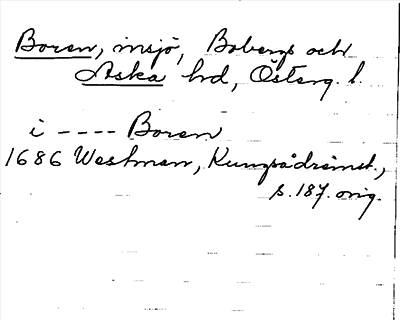 Boren, insjö, Bobergs och
Aska hd, Österg. l.
i ---- Boren
1686 Westman, Kungsådrömät.,
s. 187. orig.